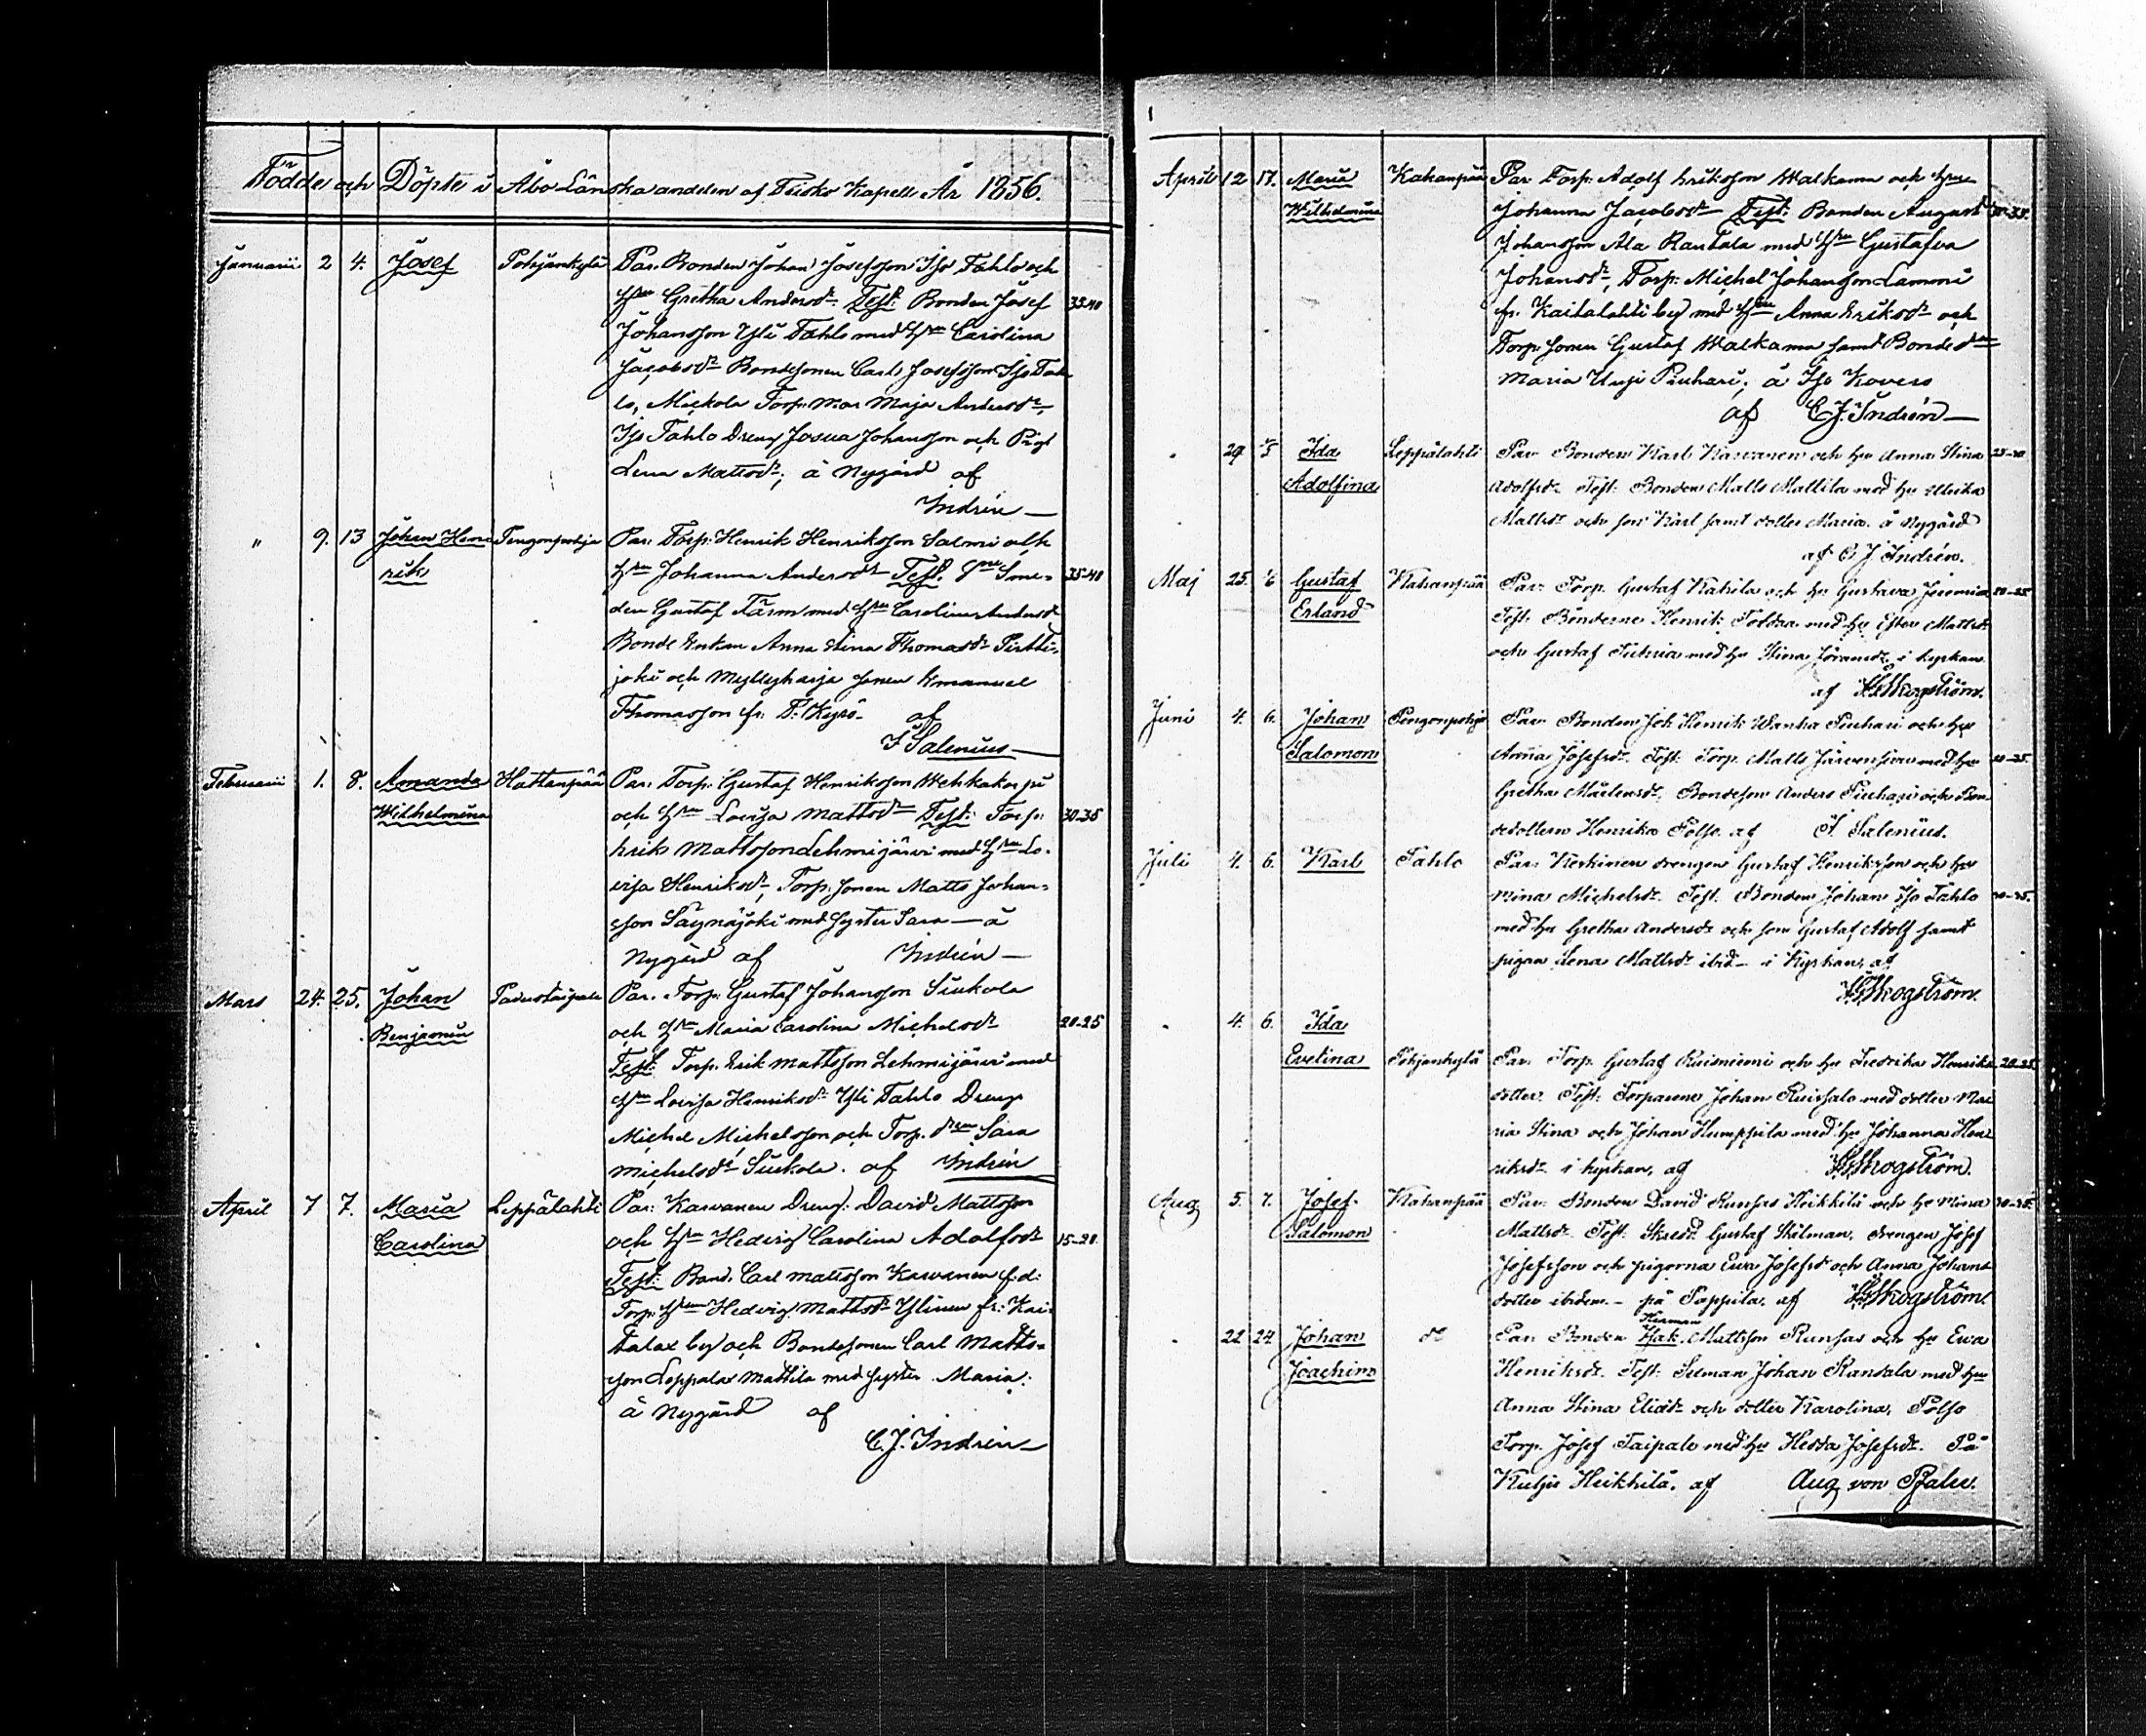 Födde och Döpte i Åbo Länska andelen af Teisko Kapell År 1856.
Januarii 2 4. Josef Pohjankylä Par. Bonden Johan Josefsson Iso Tahlo och
Hru Gretha Andersdr. Test: Bonden Josef 35-40
Johansson Yli Tahlo med Hru Carolina
Jacobsdr Bondesonen Carl Josefsson Iso Tah-
lo, Mickola Torp. Maja Andersdr,
Iso Tahlo Dreng Josua Johansson och Pig.
Lena Mattsdr; å Nygård af
Indrén
" 9. 13 Johan Hen- Tengonpohja Par: Torp: Henrik Henriksson Salmi och
rik Hru Johanna Andersdr Test. Sme- 35-40
den Gustaf Färm med Hru Carolina Andersdr
Bonde Enkan Anna Stina Thomasdr Pirtti-
joki och Myllyharja sonen Emanuel
Thomasson fr: T: Kyrö. af
F Salenius
Februarii 1. 8. Amanda Hattanpää Par: Torp: Gustaf Henriksson Wehkakorpi
Wilhelmina och Hru Lovisa Mattsdr Test: Torp: 30-35
Erik Mattsson Lehmijärvi med Hru Lo-
visa Henriksdr, Torp. sonen Matts Johan-
sson Säynäjoki med syster Sara — å
Nygård af Indrén
Mars 24. 25. Johan Padustaipale Par. Torp: Gustaf Johansson Siukola
Benjamin och Hru Maria Carolina Michelsdr 20-25
Test: Torp. Erik Mattsson Lehmijärvi med
Hru Lovisa Henriksdr Yli Tahlo Dreng
Michel Michelsson och Torp. dren Sara
Michelsdr Siukola. af Indrén
April 7 7. Maria Leppälahti Par: Karvanen Dreng: David Mattsson
Carolina och Hru Hedvig Carolina Adolfsdr 15-20.
Test: Bond. Carl Mattsson Karvanen f.d.
Torp: Hru Hedvig Mattsdr Ylinen fr: Kai-
talax by och Bondesonen Carl Matts-
son Leppälax Mattila med syster Maria:
å Nygård af
C. J. Indrén
April 12 17. Maria Kakanpää Par Torp: Adolf Eriksson Walkama och Hru
Wilhelmina Johanna Jacobsdr Test: Bonden August 30-35.
Johansson Ala Rautala med Hru Gustafva
Johansdr, Torp: Michel Johansson Lammi
fr. Kaitalahti by med Hru Anna Eriksdr och
Torp: sonen Gustaf Walkama samt Bonde dr
Maria Unji Piuhari; å Iso Kovero
af C J. Indrén
. 29 1/5 Ida Leppälahti Par Bonden Karl Karvanen och hu Anna Stina 25-30
Adolfina Adolfsdr. Test: Bonden Matts Mattila med hu Ulrika
Mattsdr och son Karl samt dotter Maria. å Nygård
af C J. Indrén.
Maj 25. 1/6 Gustaf Kakanpää Par: Torp. Gustaf Kakila och hu Gustava Jeremia 20-25
Erland Test. Bönderne Henrik Toldaa med hu Ester Mattsdr
och Gustaf Tuhria med hu Stina Jöransdr, i kyrkan
af Skogström.
Juni 4. 6. Johan Tengonpohja Par. Bonden Joh Henrik Wanha Piuhari och hu
Salomon Anna Josefsdr. Test: Torp. Matts Järvensivu med hu 20-25.
Gretha Mårtensdr, Bondeson Anders Piuhari och Bon
dedottern Henrika Pölso. af F. Salenius.
Juli 4. 6. Karl Tahlo Par: Keskinen drengen Gustaf Henriksson och hu
Mina Michelsdr. Test. Bonden Johan Iso Tahlo 20-25.
med hu Gretha Andersdr och son Gustaf Adolf samt
pigan Lena Mattsdr ibid— i Kyrkan, af
Skogström.
. 4. 6. Ida
Evelina Pohjankylä Par. Torp. Gustaf Ruisniemi och hu Fredrika Henriks 20-25
dotter. Test: Torparene Johan Ruissalo med dotter Ma
ria Stina och Johan Humppila med hu Johanna Hen
riksdr i kyrkan, af Skogström.
Aug 5. 7. Josef Kakanpää Par. Bonden David Runsas Heikkilä och hu Mina 30-35.
Salomon Mattsdr. Test: Skredr Gustaf Stålman, drengen Josef
Josefsson och pigorna Ewa Josefsdr och Anna Johans
dotter ibidem. — på Pappila, af Skogström.
. 22 24 Johan do Par Bonden Herman Jak. Mattsson Runsas och hu Ewa
Joachim Henriksdr. Test: Johan Rantala med hu
Anna Stina Eliædr och dotter Karolina, Pölso
Torp. Josef Taipale med hu Hedda Josefsdr. På
Kulju Heikkilä, af Aug von Pfaler.